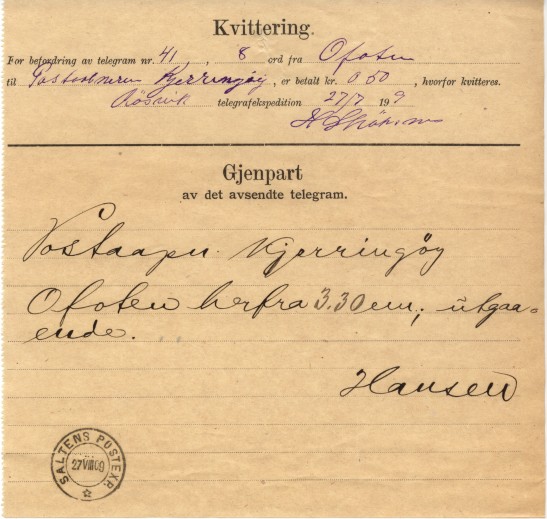 Kvittering.
For befordring av telegram nr. 41, 8 ord fra Ofoten
til Postaabneren Kjerringøy, er betalt kr. 0 50, hvorfor kvitteres.
Røsvik telegrafekspedition 27/7 19 9
Gjenpart
av det avsendte telegram.
Postaapn. Kjerringøy
Ofoten herfra 3.30 em; utgaa-
ende.
Hansen
SALTENS POSTEXP.
27 VIII 09